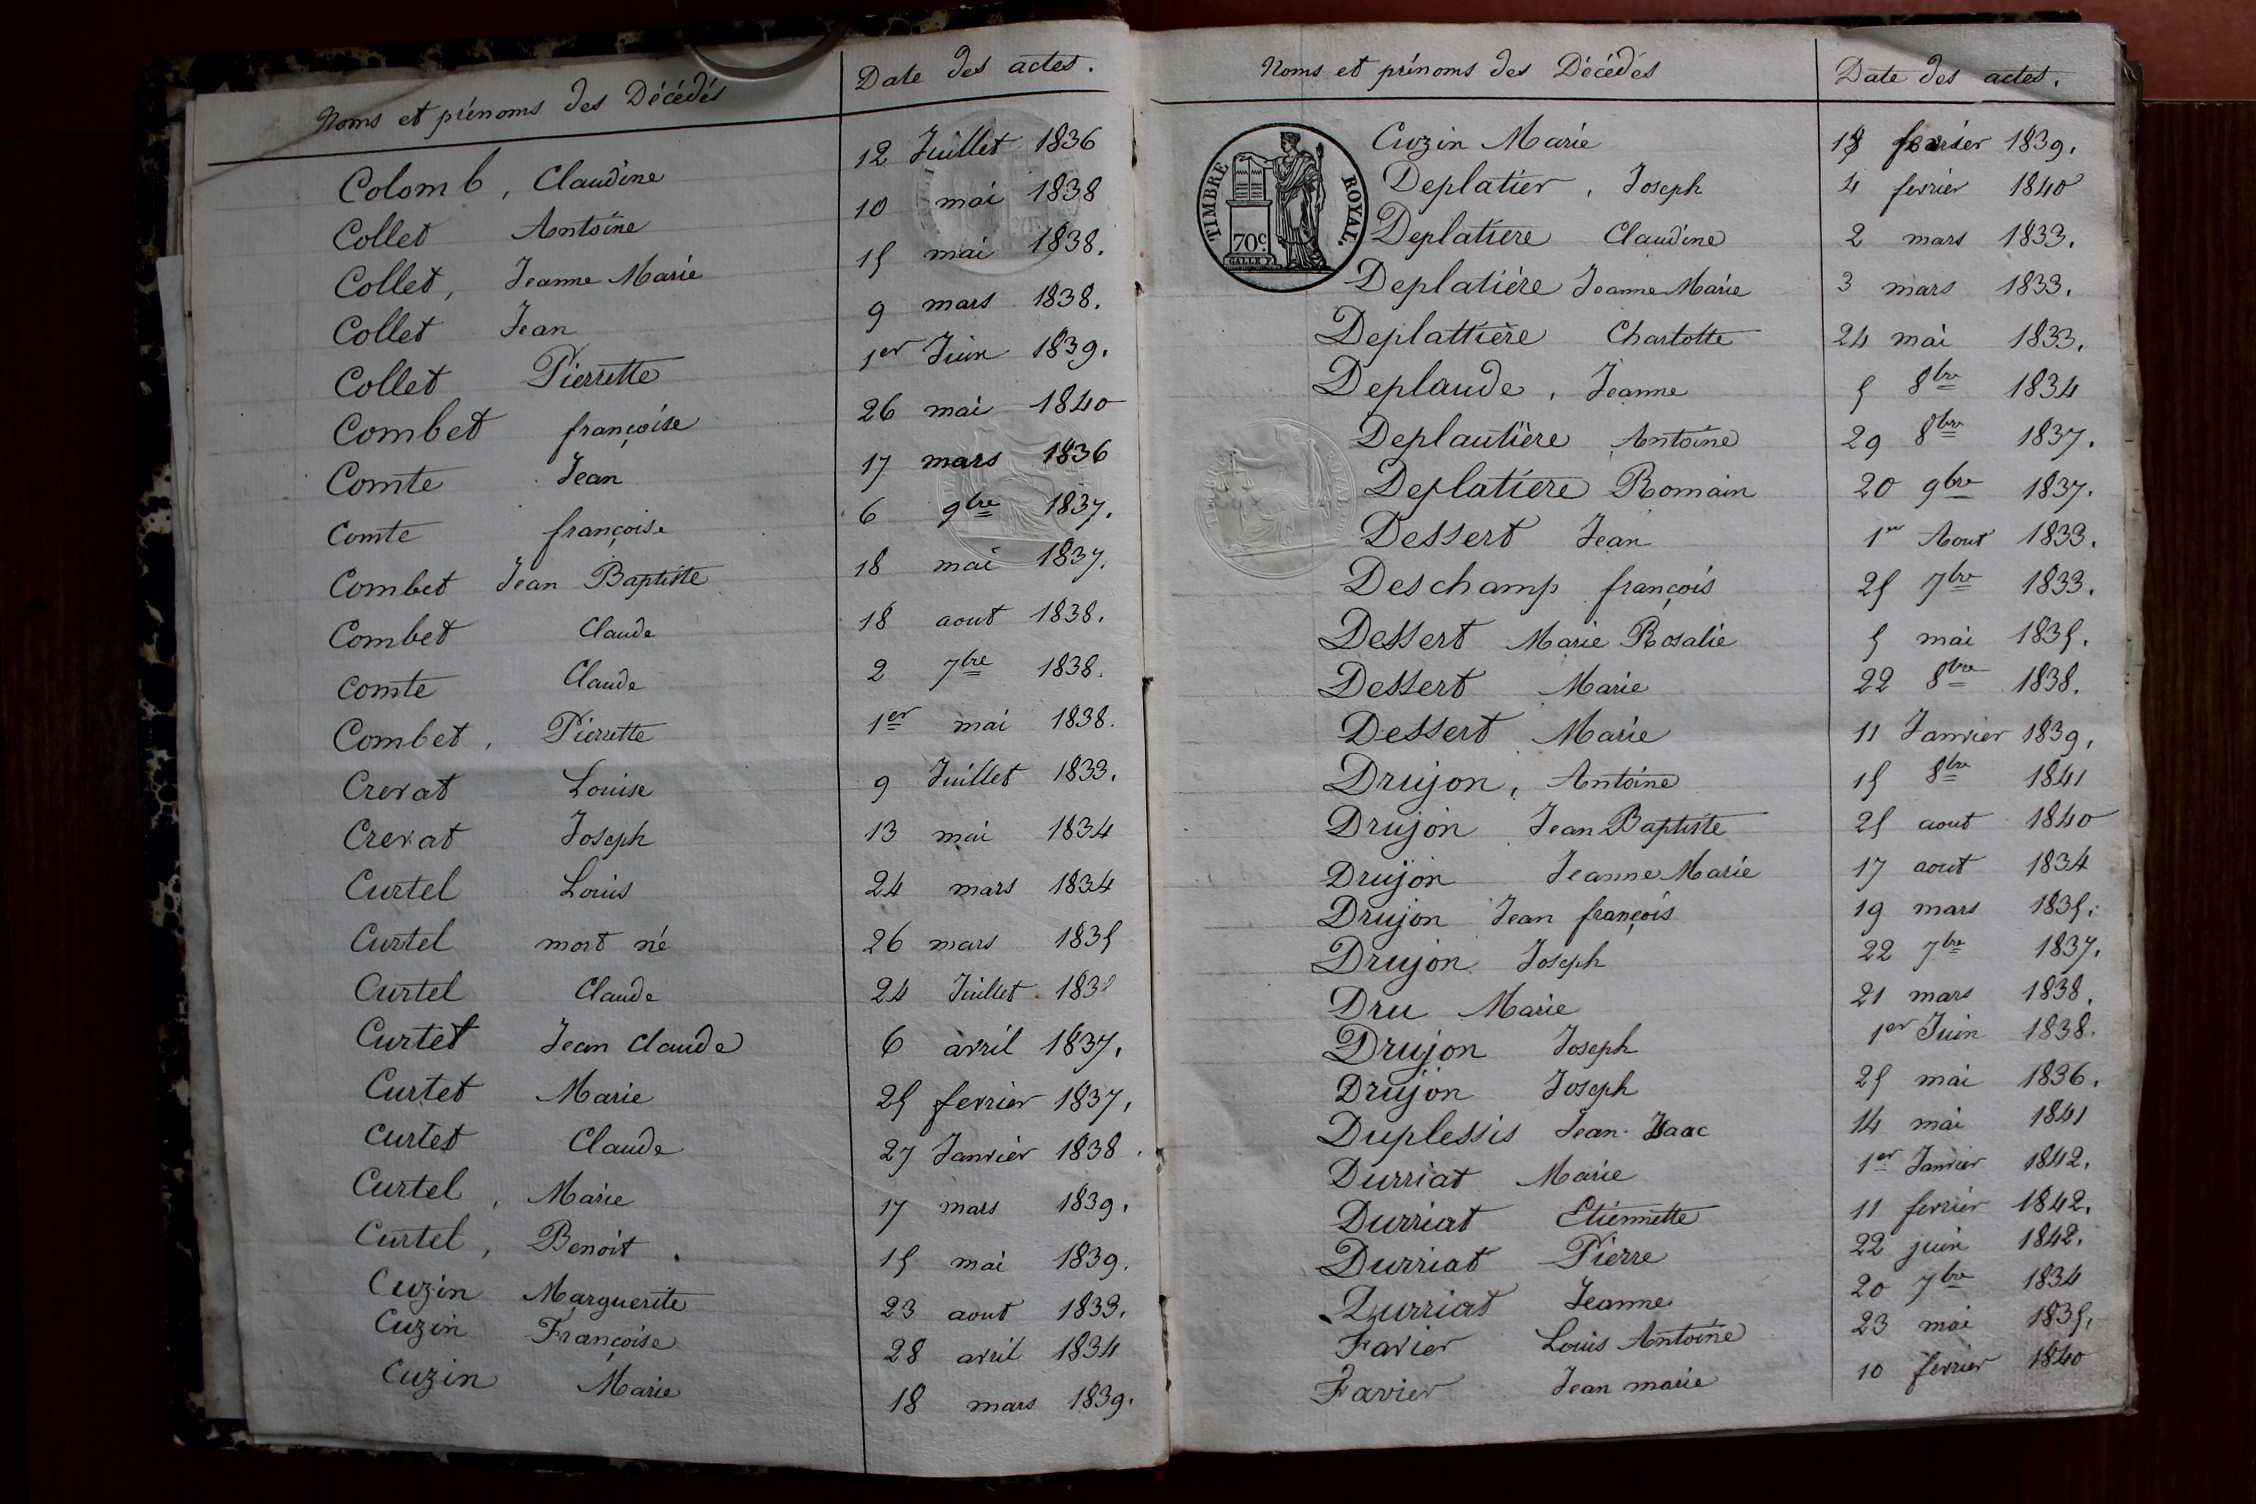 Noms et prénoms des Décédés Date des actes.
Colomb, Claudine 12 Juillet 1836
Collet Antoine 10 mai 1838
Collet, Jeanne Marie 15 mai 1838.
Collet Jean 9 mars 1838.
Collet Pierrette 1er Juin 1839.
Combet françoise 26 mai 1840
Comte Jean 17 mars 1836
Comte françoise 6 9bre 1837.
Combet Jean Baptiste 18 mai 1837.
Combet Claude 18 aout 1838.
Comte Claude 2 7bre 1838.
Combet, Pierrette 1er mai 1838.
Crevat Louise 9 Juillet 1833.
Crevat Joseph 13 mai 1834
Curtel Louis 24 mars 1834
Curtel mort né 26 mars 1835
Curtel Claude 24 Juillet
Curtet Jean Claude 6 avril 1837.
Curtet Marie 25 fevrier 1837.
Curtet Claude 27 Janvier 1838.
Curtel, Marie 17 mars 1839.
Curtel, Benoit. 15 mai 1839.
Cuzin Marguerite 23 aout 1833.
Cuzin Françoise 28 avril 1834
Cuzin Marie 18 mars 1839.
Noms et prénoms des Décédés Date des actes.
TIMBRE ROYAL.
70c.
GALLE F.
Cuzin Marie fevrier 1839.
Deplatier, Joseph 4 fevrier 1840
Deplatiere Claudine 2 mars 1833.
Deplatière Jeanne Marie 3 mars 1833.
Deplattière Charlotte 24 mai 1833.
Deplaude, Jeanne 5 8bre 1834
Deplautière Antoine 29 8bre 1837.
Deplatiere Romain 20 9bre 1837.
Dessert Jean 1er Aout 1833.
Deschamp françois 25 7bre 1833.
Dessert Marie Rosalie 5 mai 1835.
Dessert Marie 22 8bre 1838.
Dessert Marie 11 Janvier 1839.
Drujon, Antoine 15 8bre 1841
Drujon Jean Baptiste 25 aout 1840
Drujon Jeanne Marie 17 aout 1834
Drujon Jean françois 19 mars 1835.
Drujon Joseph 22 7bre 1837.
Dru Marie 21 mars 1838.
Drujon Joseph 1er Juin 1838.
Drujon Joseph 25 mai 1836.
Duplessis Jean Isaac 14 mai 1841
Durriat Marie 1er Janvier 1842.
Durriat Etiennette 11 fevrier 1842.
Durriat Pierre 22 juin 1842.
Durriat Jeanne 20 7bre 1834
Favier Louis Antoine 23 mai 1835.
Favier Jean marie 10 fevrier 1840